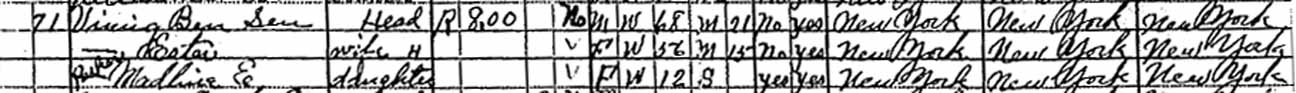 71 Vining Ben Sen Head R 8.00 No M W 68 M 21 No yes New York New York New York
— wife H V F W 56 M 15 No yes New York New York New York
Madline E. daughter V F W 12 S yes yes New York New York New York